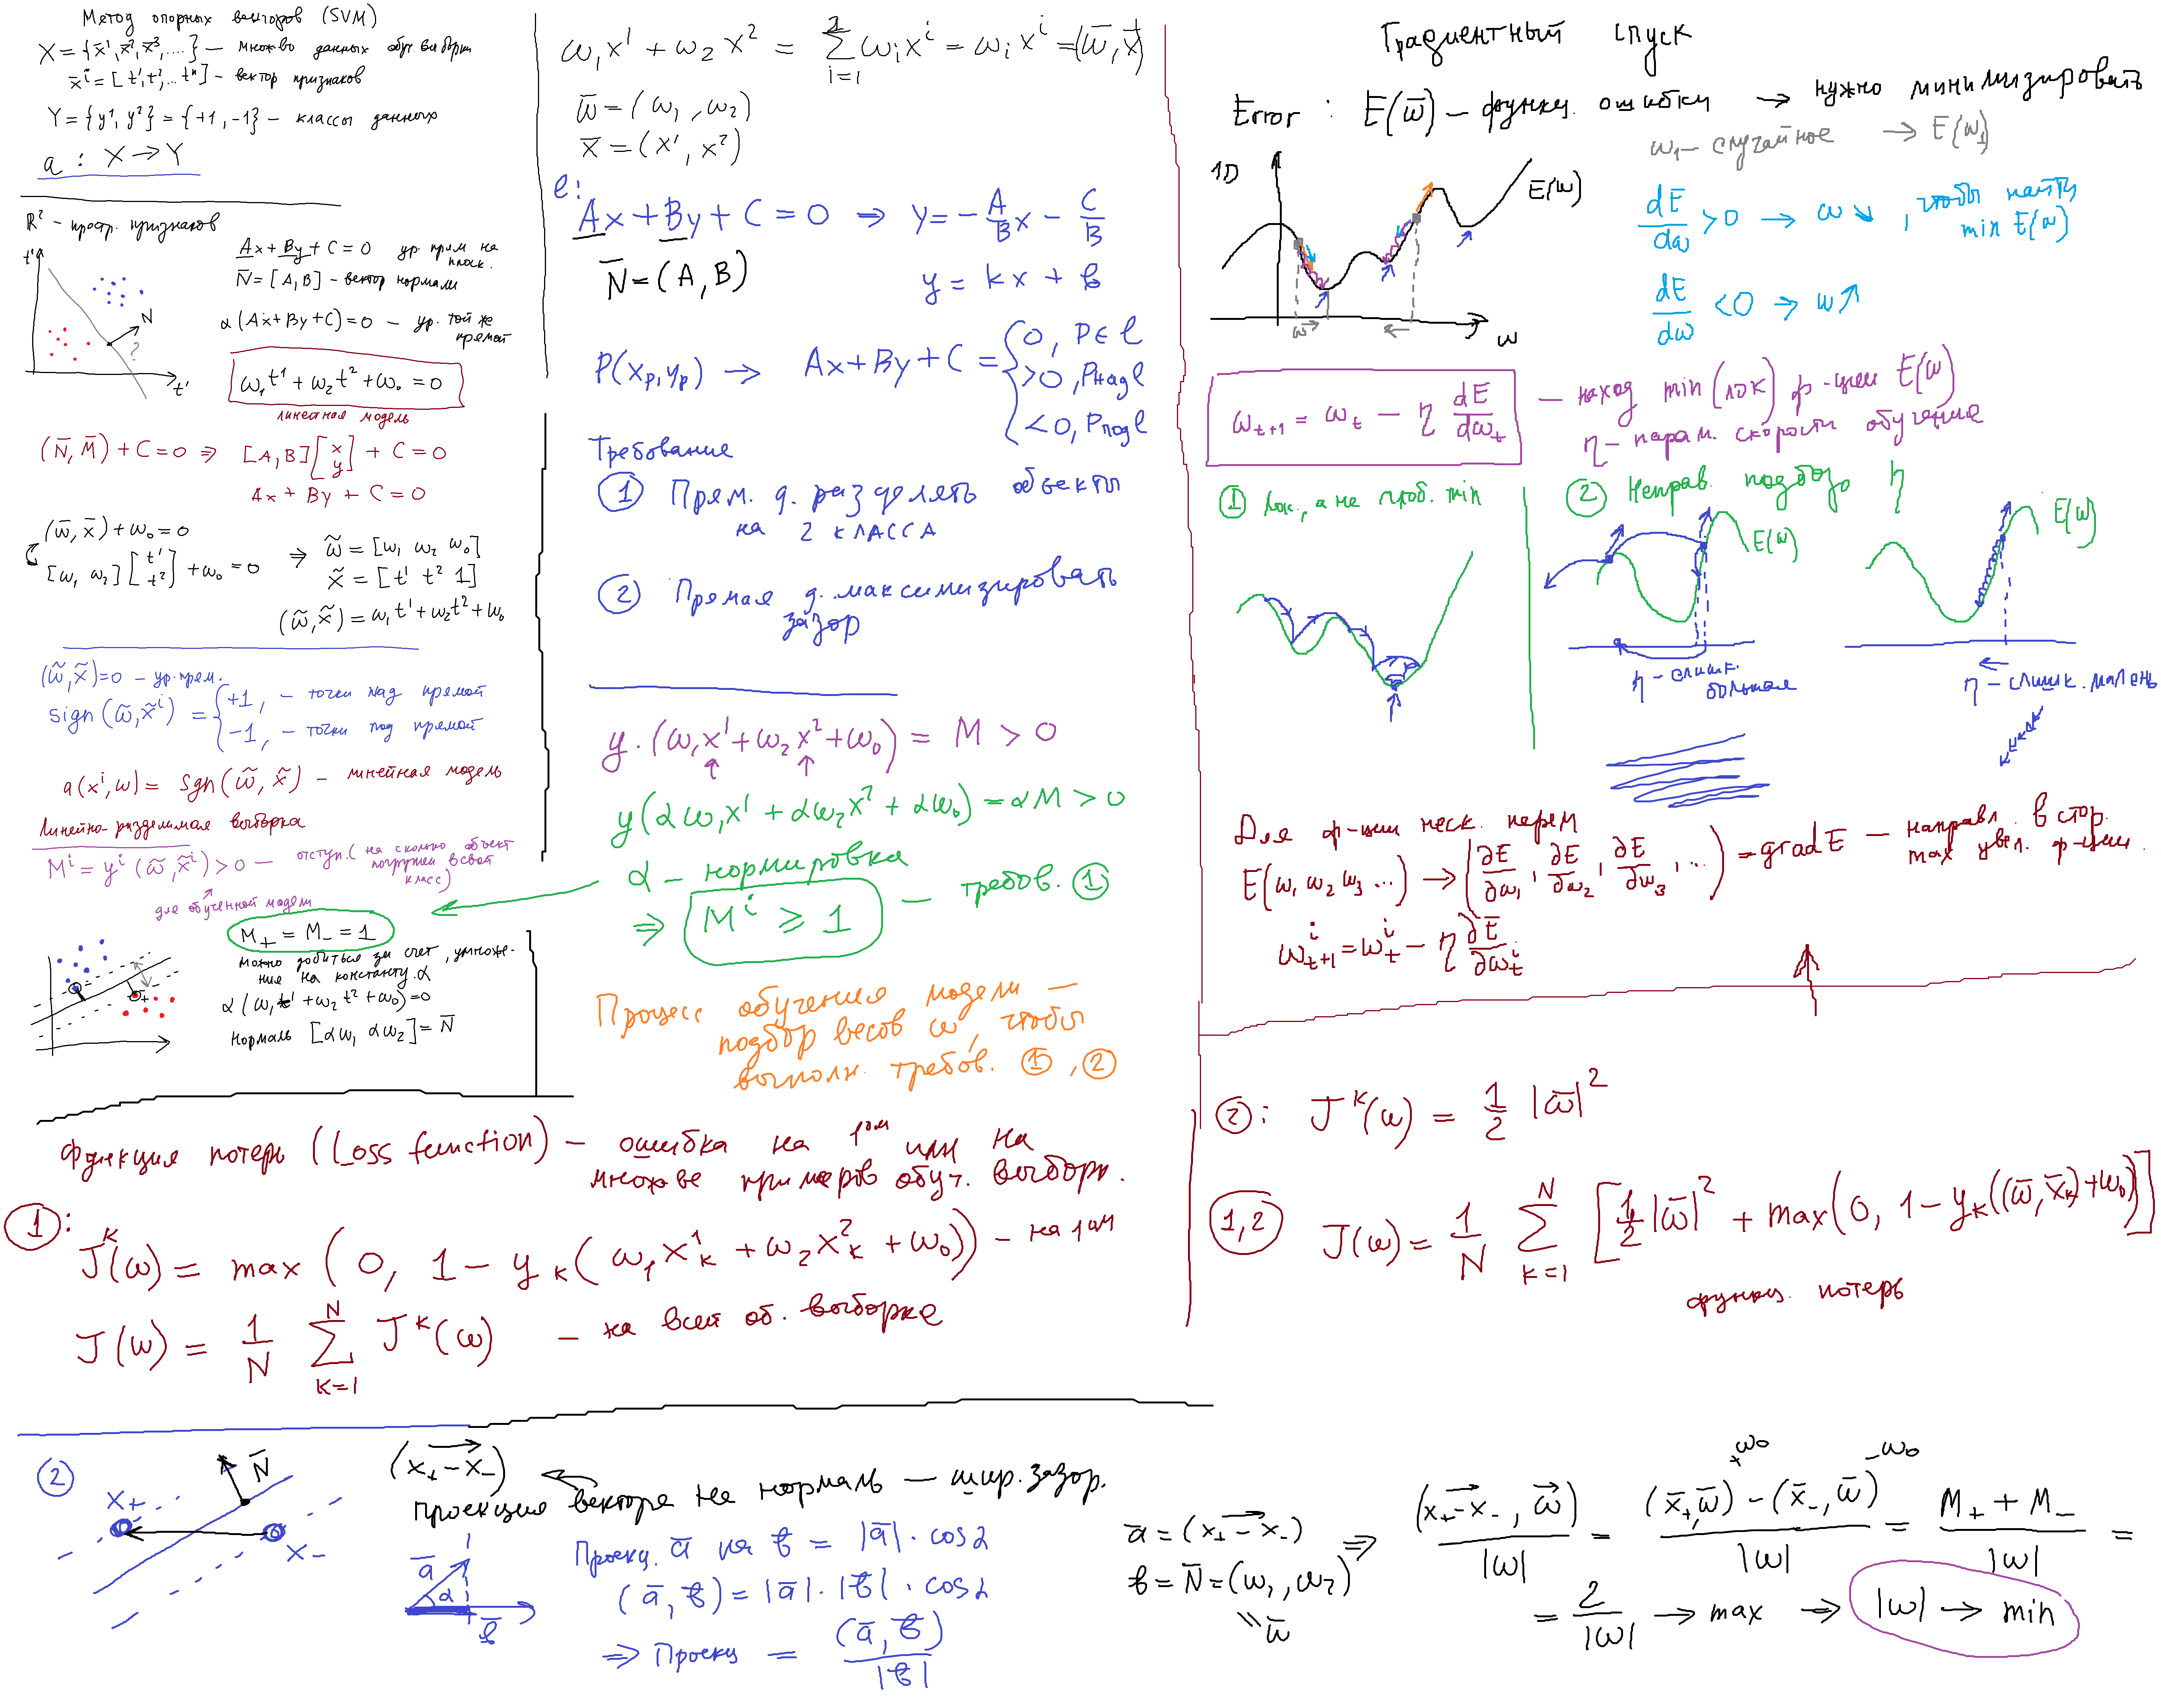 Метод опорных векторов (SVM)
X = {x̄¹, x̄², x̄³, ....} — множво данных обуч. выборки
x̄ⁱ = [t¹, t², ... tⁿ] — вектор признаков
Y = {y¹, y²} = {+1, -1} — классы данных
a : X → Y
R² - простр. признаков
Ax + By + C = 0 ур. прям на плоск.
N̄ = [A, B] - вектор нормали
α(Ax+By+C) = 0 — ур. той же прямой
N
?
t'
t'
ω₁t¹ + ω₂t² + ω₀ = 0
линейная модель
(N̄, M̄) + C = 0 ⇒ [A, B][x y] + C = 0
Ax + By + C = 0
(ω̄, x̄) + ω₀ = 0
[ω₁ ω₂][t¹ t²] + ω₀ = 0
⇒ ω̃ = [ω₁ ω₂ ω₀]
x̃ = [t¹ t² 1]
(ω̃, x̃) = ω₁t¹ + ω₂t² + ω₀
(ω̃, x̃) = 0 — ур. прям.
sign(ω̃, x̃ⁱ) = { +1, — точки над прямой
-1, — точки под прямой
a(xⁱ, ω) = sgn(ω̃, x̃) — линейная модель
Линейно-разделимая выборка
Mⁱ = yⁱ(ω̃, x̃ⁱ) > 0 — отступ. (на сколько объект
погружен в свой
класс)
для обученной модели
M₊ = M₋ = 1
можно добиться за счет, умноже-
ния на константу α
α(ω₁t¹ + ω₂t² + ω₀) = 0
нормаль [αω₁ αω₂] = N̄
ω₁x¹ + ω₂x² = Σ²ᵢ₌₁ ωᵢxⁱ = ωᵢxⁱ = (ω̄, x̄)
ω̄ = (ω₁, ω₂)
x̄ = (x¹, x²)
ℓ:
Ax + By + C = 0 ⇒ y = -A/B x - C/B
N̄ = (A, B)
y = kx + b
P(xₚ, yₚ) → Ax + By + C = { 0, P∈ℓ
>0, P над ℓ
<0, P под ℓ
Требование
① Прям. д. разделять объекты
на 2 класса
② Прямая д. максимизировать
зазор
y·(ω₁x¹ + ω₂x² + ω₀) = M > 0
y(αω₁x¹ + αω₂x² + αω₀) = αM > 0
α — нормировка
⇒ Mⁱ ⩾ 1 — требов. ①
Процесс обучения модели —
подбор весов ω, чтобы
выполн. требов. ①, ②
Градиентный спуск
Error : E(ω̄) — функц. ошибки → нужно минимизировать
ω₁ — случайное → E(ω₁)
1D
E(ω)
ω
ω
dE/dω > 0 → ω ↘, чтобы найти
min E(ω)
dE/dω < 0 → ω ↗
ωₜ₊₁ = ωₜ - η dE/dωₜ
— наход min (лок) ф-ции E(ω)
η — парам. скорости обучения
① Лок., а не глоб. min
② Неправ. подбор η
E(ω)
E(ω)
η — слишк.
большая
η — слишк. мален
Для ф-ции неск. перем
E(ω₁ ω₂ ω₃ ...) → (∂E/∂ω₁, ∂E/∂ω₂, ∂E/∂ω₃, ...) = grad E — направл. в стор.
max увел. ф-ции.
ωⁱₜ₊₁ = ωⁱₜ - η ∂E/∂ωⁱₜ
Функция потерь (Loss function) — ошибка на 1ᵒᵐ или на
множ-ве примеров обуч. выборк.
①:
Jᵏ(ω) = max(0, 1 - yₖ(ω₁x¹ₖ + ω₂x²ₖ + ω₀)) — на 1ᵒᵐ
J(ω) = 1/N Σᴺₖ₌₁ Jᵏ(ω) — на всей об. выборке
②: Jᵏ(ω) = 1/2 |ω̄|²
1,2 J(ω) = 1/N Σᴺₖ₌₁ [1/2|ω̄|² + max(0, 1 - yₖ((ω̄, x̄ₖ) + ω₀))]
функц. потерь
②
x₊
N̄
x₋
(x₊ - x₋)
проекция вектора на нормаль — шир. зазор.
ā
α
b̄
Проекц. ā на b̄ = |ā|·cosα
(ā, b̄) = |ā|·|b̄|·cosα
⇒ Проекц = (ā, b̄)/|b̄|
ā = (x₊ - x₋)
b = N̄ = (ω₁, ω₂)
ω̄
⇒ (x₊ - x₋, ω)/|ω| = ((x̄₊, ω̄) +ω₀ - (x̄₋, ω̄) -ω₀)/|ω| = (M₊ + M₋)/|ω| =
= 2/|ω| → max ⇒ |ω| → min